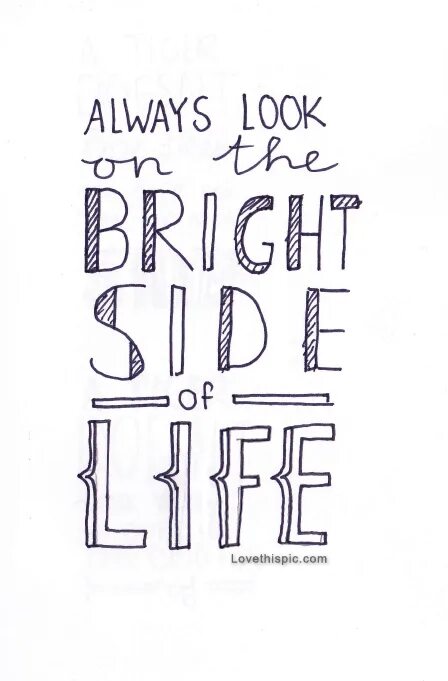 ALWAYS LOOK
on the
BRIGHT
SIDE
OF
LIFE
Lovethispic.com